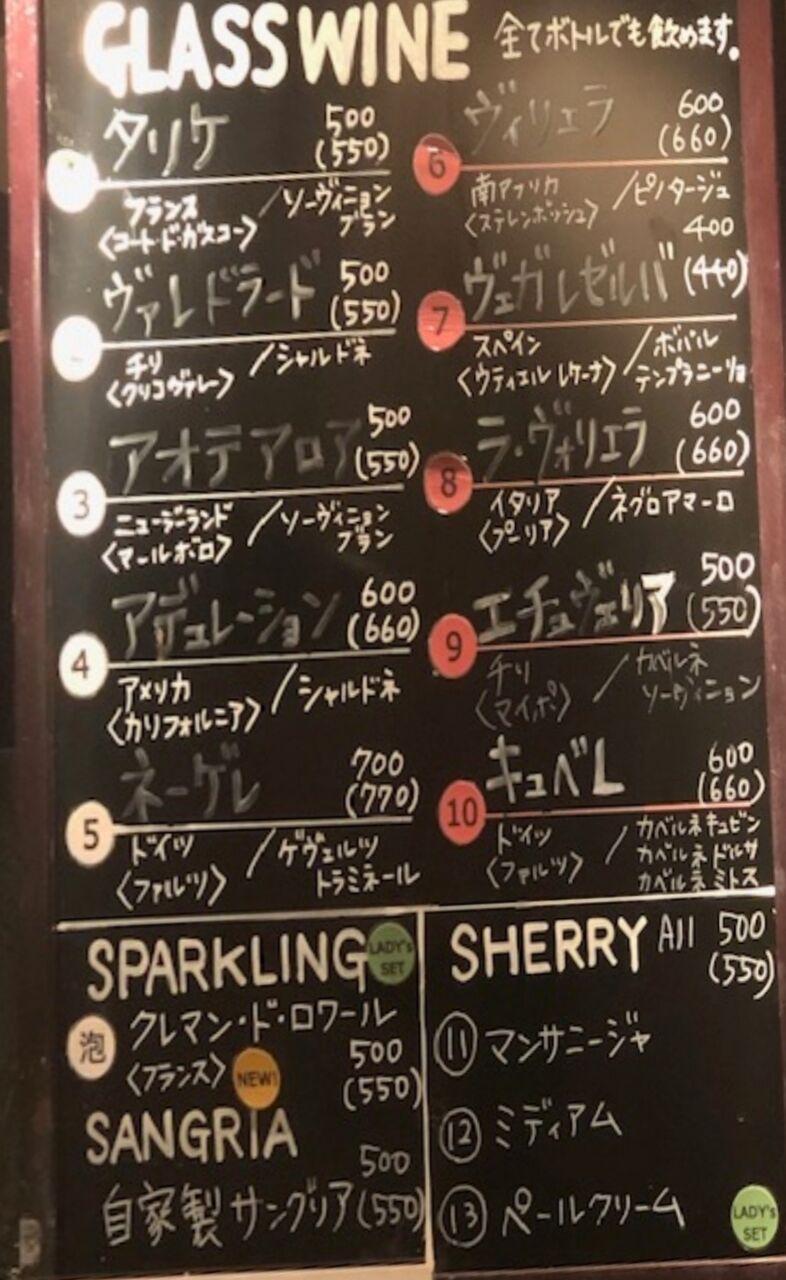 GLASS WINE 全てボトルでも飲めます。
タリケ 500
(550)
フランス
〈コート・ド・ガスコー〉
/ソーヴィニョン
ブラン
ヴァレドラード 500
(550)
チリ
〈クリコヴァレー〉
/シャルドネ
3 アオテアロア 500
(550)
ニュージーランド
〈マールボロ〉
/ソーヴィニョン
ブラン
4 アデュレーション 600
(660)
アメリカ
〈カリフォルニア〉
/シャルドネ
5 ネーゲレ 700
(770)
ドイツ
〈ファルツ〉
/ゲヴェルツ
トラミネール
6 ヴィリエラ 600
(660)
南アフリカ
〈ステレンボッシュ〉
/ピノタージュ
7 ヴェガレゼルバ 400
(440)
スペイン
〈ウティエル レケーナ〉
/ボバル
テンプラニーリョ
8 ラ・ヴォリエラ 600
(660)
イタリア
〈プーリア〉
/ネグロアマーロ
9 エチュヴェリア 500
(550)
チリ
〈マイポ〉
/カベルネ
ソーヴィニョン
10 キュベL 600
(660)
ドイツ
〈ファルツ〉
/カベルネ キュビン
カベルネ ドルサ
カベルネ ミトス
SPARKLING LADY's
SET
泡 クレマン・ド・ロワール
〈フランス〉 NEW! 500
(550)
SANGRIA
500
自家製サングリア (550)
SHERRY All 500
(550)
⑪ マンサニージャ
⑫ ミディアム
⑬ ペールクリーム
LADY's
SET